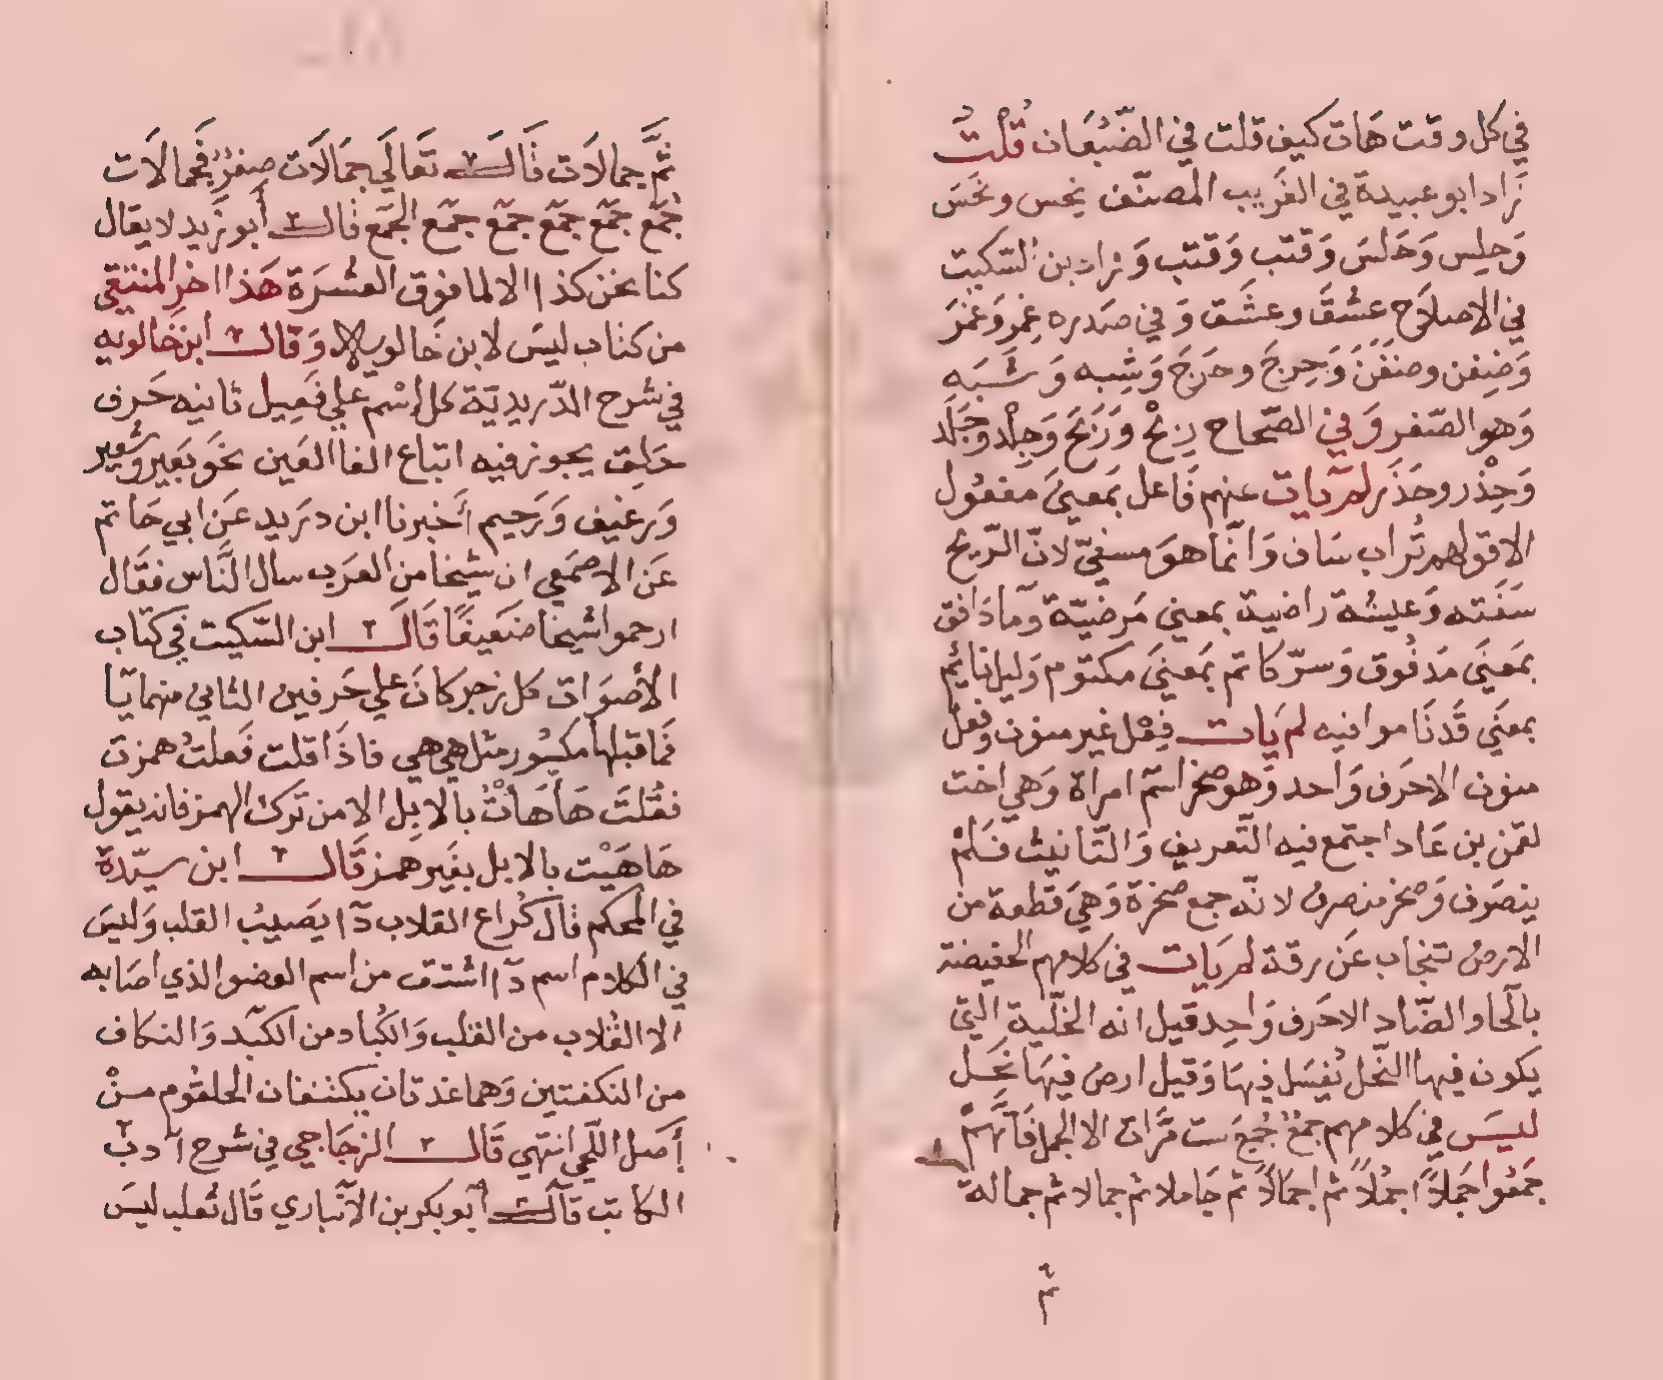 في كل وقت هات كيف قلت في الضبعان قلت
زاد ابو عبيدة في الغريب المصنف نحس ونحس
وحلس وحلس وقتب وقتب وزاد بن السكيت
في الاصلاح عشق وعشق وفي صدره غمر وغمر
وضغن وضغن وحرج وحرج وشبه وشبه
وهو الصفر وفي الصحاح ربح وربح وجلد وجلد
وحذر وحذر لم يات عنهم فاعل بمعنى مفعول
الا قولهم تراب ساف وانما هو مسفي لان الريح
سفته وعيشة راضية بمعنى مرضية وما دافق
بمعنى مدفوق وسر كاتم بمعنى مكتوم وليل نائم
بمعنى قد ناموا فيه لم يات فعل غير منون وفعل
منون الا حرف واحد وهو صخر اسم امراة وهي اخت
لقمن بن عاد اجتمع فيه التعريف والتانيث فلم
ينصرف وصخر منصرف لانه جمع صخرة وهي قطعة من
الارض تنجاب عن رقة لم يات في كلامهم الحفيضة
بالحا والضاد الا حرف واحد قيل انه الخلية التي
يكون فيها النحل يفسل فيها وقيل ارض فيها نحل
ليس في كلامهم جمع جمع ست مرات الا الجمل فانهم
جمعوا جملا اجملا ثم اجمالا ثم جاملا ثم جمالا ثم جمالة
ثم جمالات قال تعالى جمالات صفر فجمالات
جمع جمع جمع جمع جمع الجمع قال أبو زيد لا يقال
كنا نحن كذا الا لما فوق العشرة هذا اخر المنتقى
من كتاب ليس لابن خالويه وقال ابن خالويه
في شرح الدريدية كل إسم على فعيل ثانيه حرف
حلق يجوز فيه اتباع الفا العين نحو بعير وشعير
ورغيف ورحيم أخبرنا ابن دريد عن ابي حاتم
عن الاصمعي ان شيخا من العرب سال الناس فقال
ارحموا شيخا ضعيفا قال ابن السكيت في كتاب
الأصوات كل زجر كان على حرفين الثاني منهما يا
فما قبلها مكسور مثل هي هي فاذا قلت فعلت همزت
فقلت هأهأت بالابل الا من ترك الهمز فانه يقول
هاهيت بالابل بغير همز قال ابن سيدة
في المحكم قال كراع القلاب دآ يصيب القلب وليس
في الكلام اسم دآ اشتق من اسم العضو الذي اصابه
الا القلاب من القلب والكباد من الكبد والنكاف
من النكفتين وهما غدتان يكتنفان الحلقوم من
أصل اللحي انتهى قال الزجاجي في شرح آدب
الكاتب قال أبو بكر بن الآنباري قال ثعلب ليس